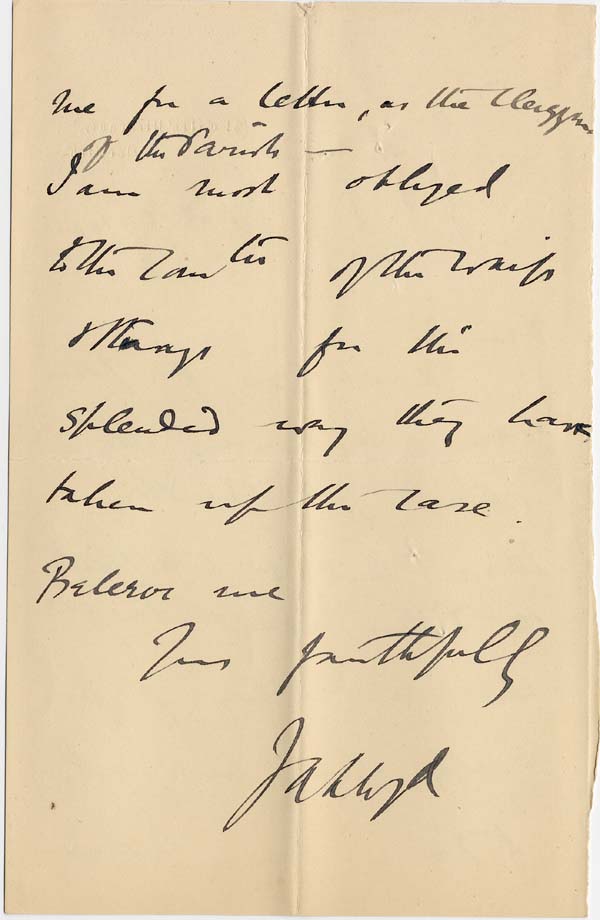 me for a letter, as the Clergyman
of the Parish —
I am most obliged
to the Comtte
of the Waifs
& Strays for the
splendid way they have
taken up the case.
Believe me
Yrs faithfully